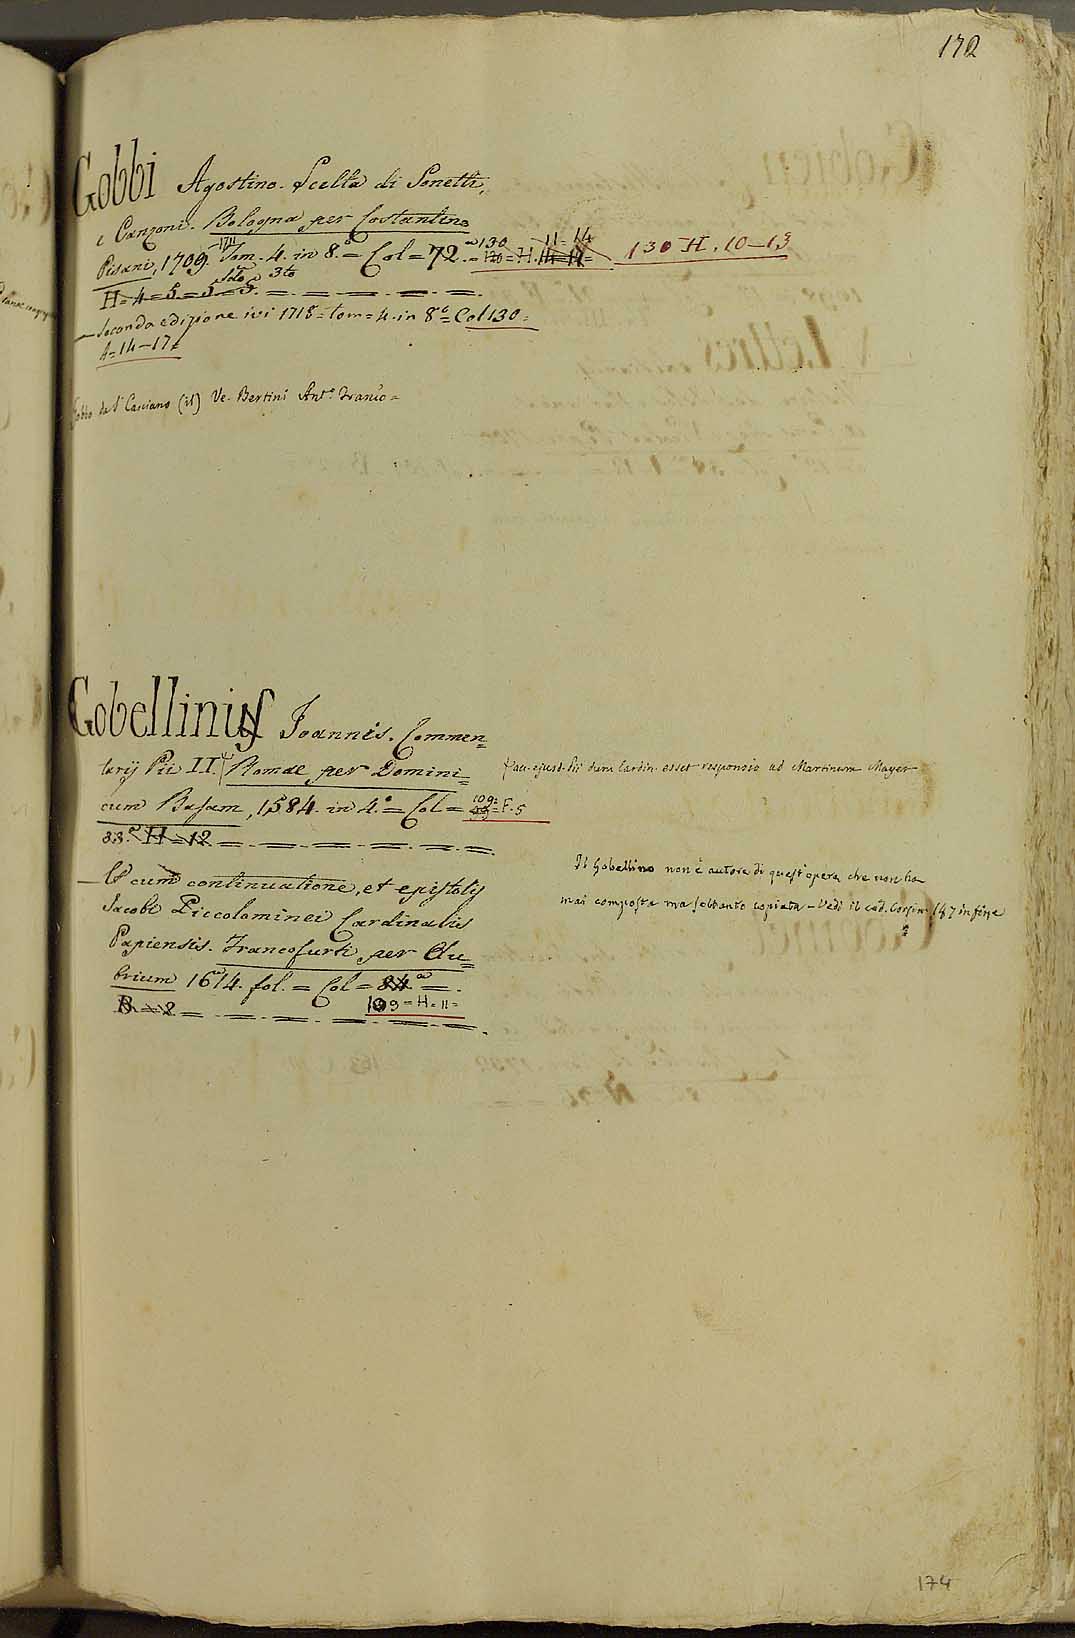 172
Gobbi Agostino. Scelta di Sonetti,
e Canzoni. Bologna per Costantino
Pisani, 1709. Tom. 4. in 8.º = Col = 72.
1711
130 H. 10–13
H = 4 = 5 =
2do 3to
— Seconda edizione ivi 1718 = tom = 4. in 8º = Col 130 =
A = 14 – 17
Gobbo da S. Casciano (il) Ve. Bertini Ant.º Franco =
Gobellinus Joannis. Commen=
tarij Pii II. Romae per Domini=
cum Basam, 1584. in 4.º = Col =
109 = F. 5
33.ª H = 12 =
Fau. ejusd. Pii dum Cardin. esset responsio ad Martinum Mayer
— Et cum continuatione, et epistolis
Jacobi Piccolominei Cardinalis
Papiensis. Francofurti per Au=
brium 1614. fol. = Col = 84.ª =
B = 2 =
109 = H = 11 =
Il Gobellino non è autore di quest'opera che non ha
mai composta ma soltanto copiata – Vedi il cod. Corsin. 147 in fine
174